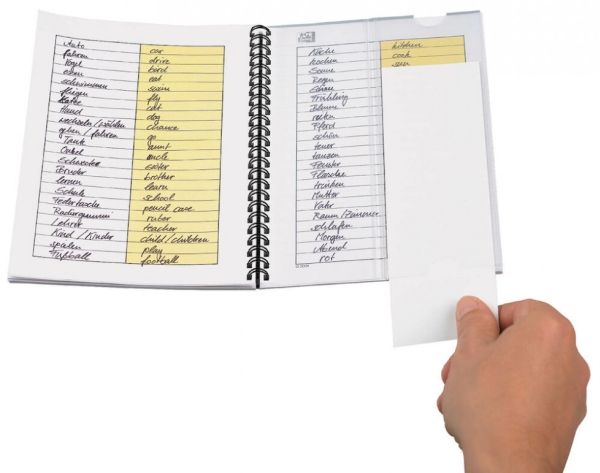 Auto car
fahren drive
Vogel bird
essen eat
schwimmen swim
fliegen fly
Hund dog
wechseln/wählen chance
gehen / fahren go
Tante aunt
Onkel uncle
Schwester sister
Bruder brother
lernen learn
Schule school
Federtasche pencil case
Radiergummi ruber
Lehrer teacher
Kind / Kinder child / children
spielen play
Fußball football
Küche kitchen
kochen cook
Sonne sun
Regen
Schnee
Frühling
Blume
reiten
Pferd
schön
teuer
tanzen
Fenster
Flasche
trinken
Mutter
Vater
Raum / Zimmer
schlafen
Morgen
Abend
rot